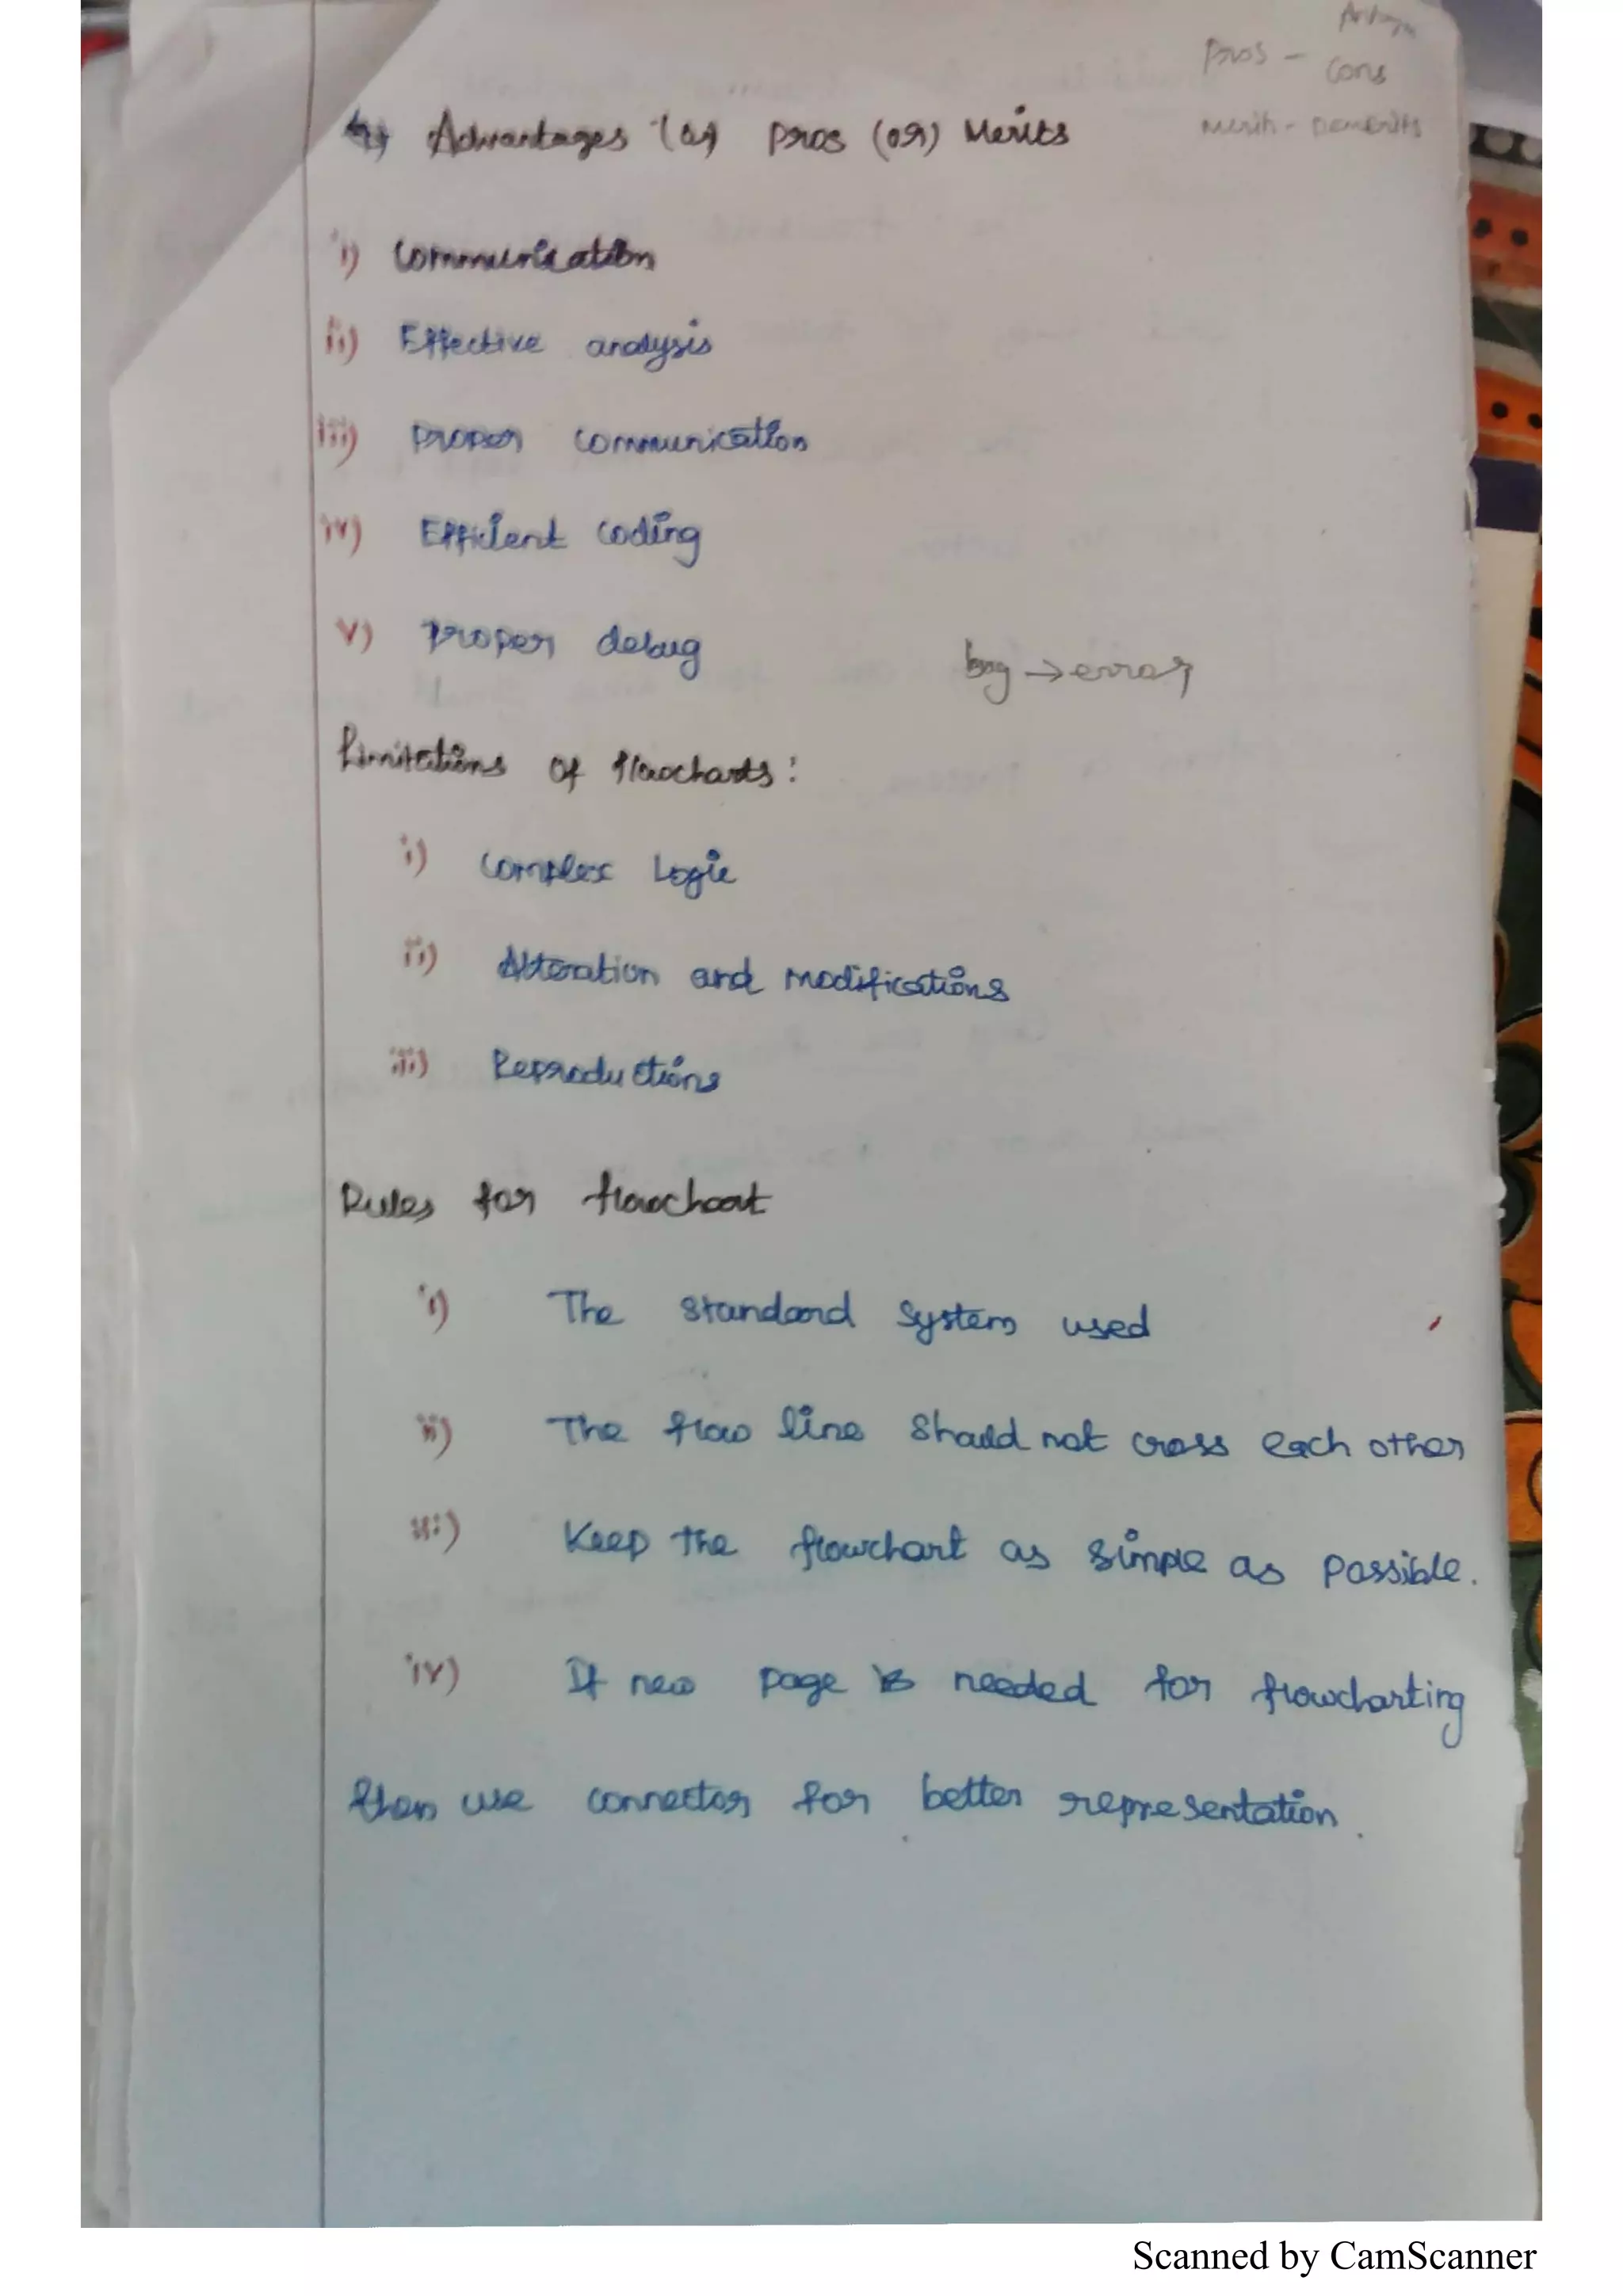 Pros - Cons
Merits - Demerits
Advantages (or) Pros (or) Merits
i) Communication
ii) Effective analysis
iii) Proper communication
iv) Efficient coding
v) Proper debug
bug → error
Limitations of flowcharts:
i) Complex Logic
ii) Alteration and modifications
iii) Reproductions
Rules for flowchart
i) The standard system used
ii) The flow line should not cross each other
iii) Keep the flowchart as simple as possible.
iv) If new page is needed for flowcharting
then use connector for better representation.
Scanned by CamScanner